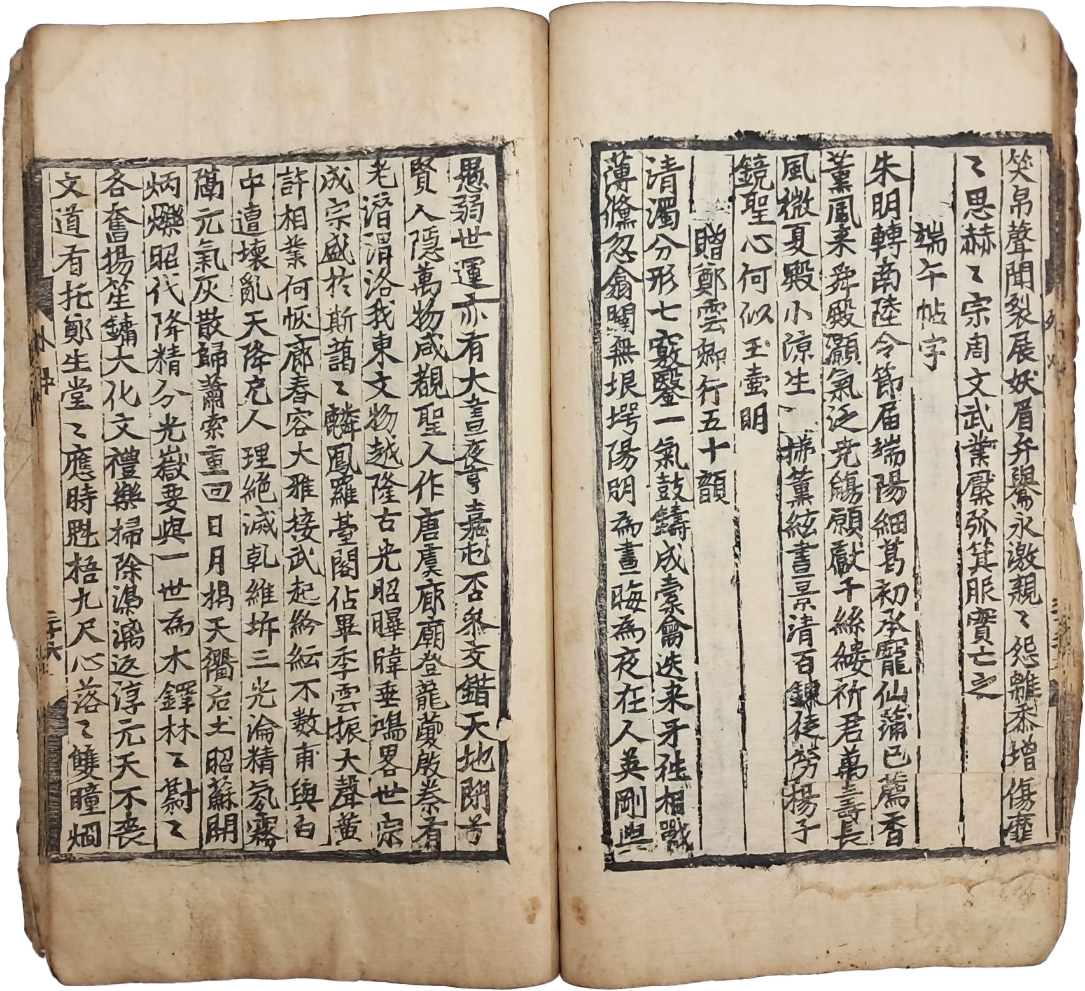 笑帛聲聞裂展妖眉弁鬯永激親〻怨離黍增傷靡
〻思赫〻宗周文武業檿弧箕服實亡之
端午帖字
朱明轉南陸令節届端陽細葛初承寵仙蒲已薦香
薰風来舜殿灝氣泛尭觴願獻千絲縷祈君萬壽長
風微夏殿小涼生 拂薰絃晝景清百鍊徒勞揚子
鏡聖心何似玉壷明
贈鄭雲卿行五十韻
清濁分形七竅鑿一氣鼓鑄成橐籥迭来牙牲相戰
薄儵忽翕闢無垠堮陽明為晝晦為夜在人英剛與
愚弱世運亦有大晝夜亨嘉屯否易交錯天地閉兮
賢人隱萬物咸覩聖人作唐虞廊廟登龍夔殷泰有
老涽渭洛我東文物越隆古光昭曄暐垂鴻畧世宗
成宗盛於斯藹〻麟鳳羅臺閣佔畢季雲振大聲黄
許相業何恢廓舂容大雅接武起紛紜不數甫與白
中遭壊亂天降充人理絶滅乾維坼三光淪精氛霧
萬元氣灰散歸蕭索重回日月揭天衢后土昭蘇開
炳爍昭代降精分光嶽要與一世為木鐸林〻蔚〻
各奮揚笙鏞大化文禮樂掃除澆漓返淳元天不丧
文道有托鄭生堂〻應時甡梧九尺心落〻雙瞳烱
二十六